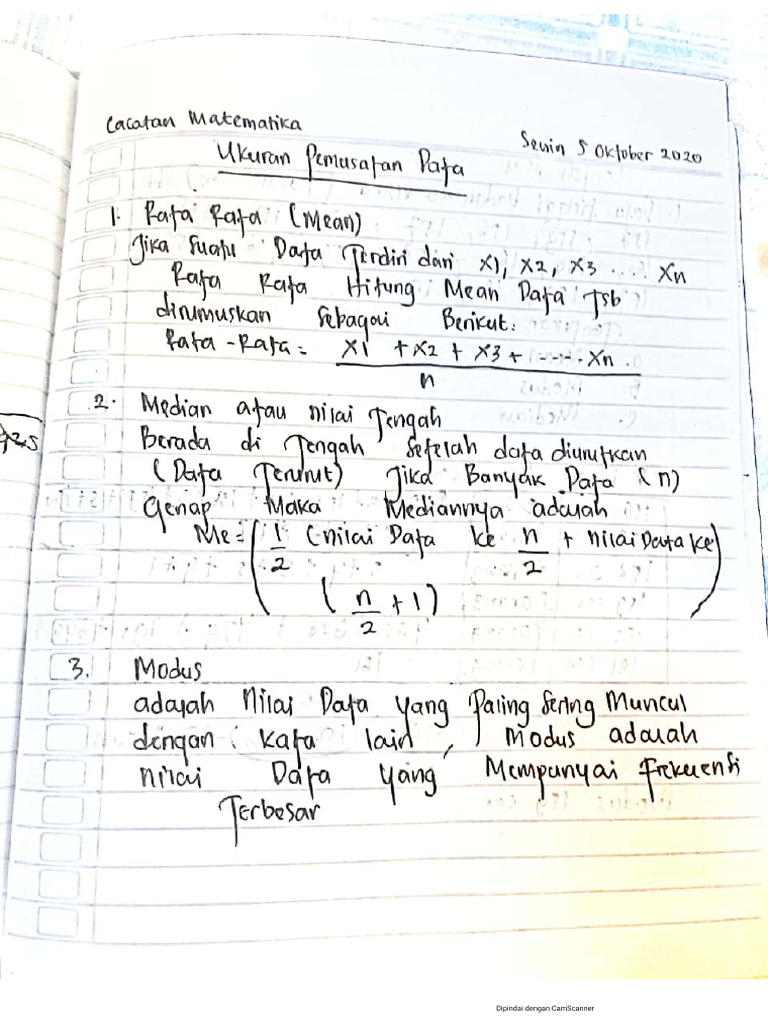 Cacatan Matematika
Senin 5 Oktober 2020
Ukuran Pemusatan Data
1. Rata Rata (Mean)
Jika Suatu Data Terdiri dari x1, x2, x3 .... Xn
Rata Rata Hitung Mean Data Tsb
dirumuskan Sebagai Berikut:
Rata-Rata = x1 + x2 + x3 + ...... Xn
n
2. Median atau nilai Tengah
Berada di Tengah Setelah data diurutkan
(Data Terurut) Jika Banyak Data (n)
Genap Maka Mediannya adalah
Me = (1/2 (nilai Data ke n/2 + nilai Data ke
(n/2 + 1))
3. Modus
adalah Nilai Data yang Paling Sering Muncul
dengan kata lain, Modus adalah
nilai Data yang Mempunyai frekuensi
Terbesar
Dipindai dengan CamScanner